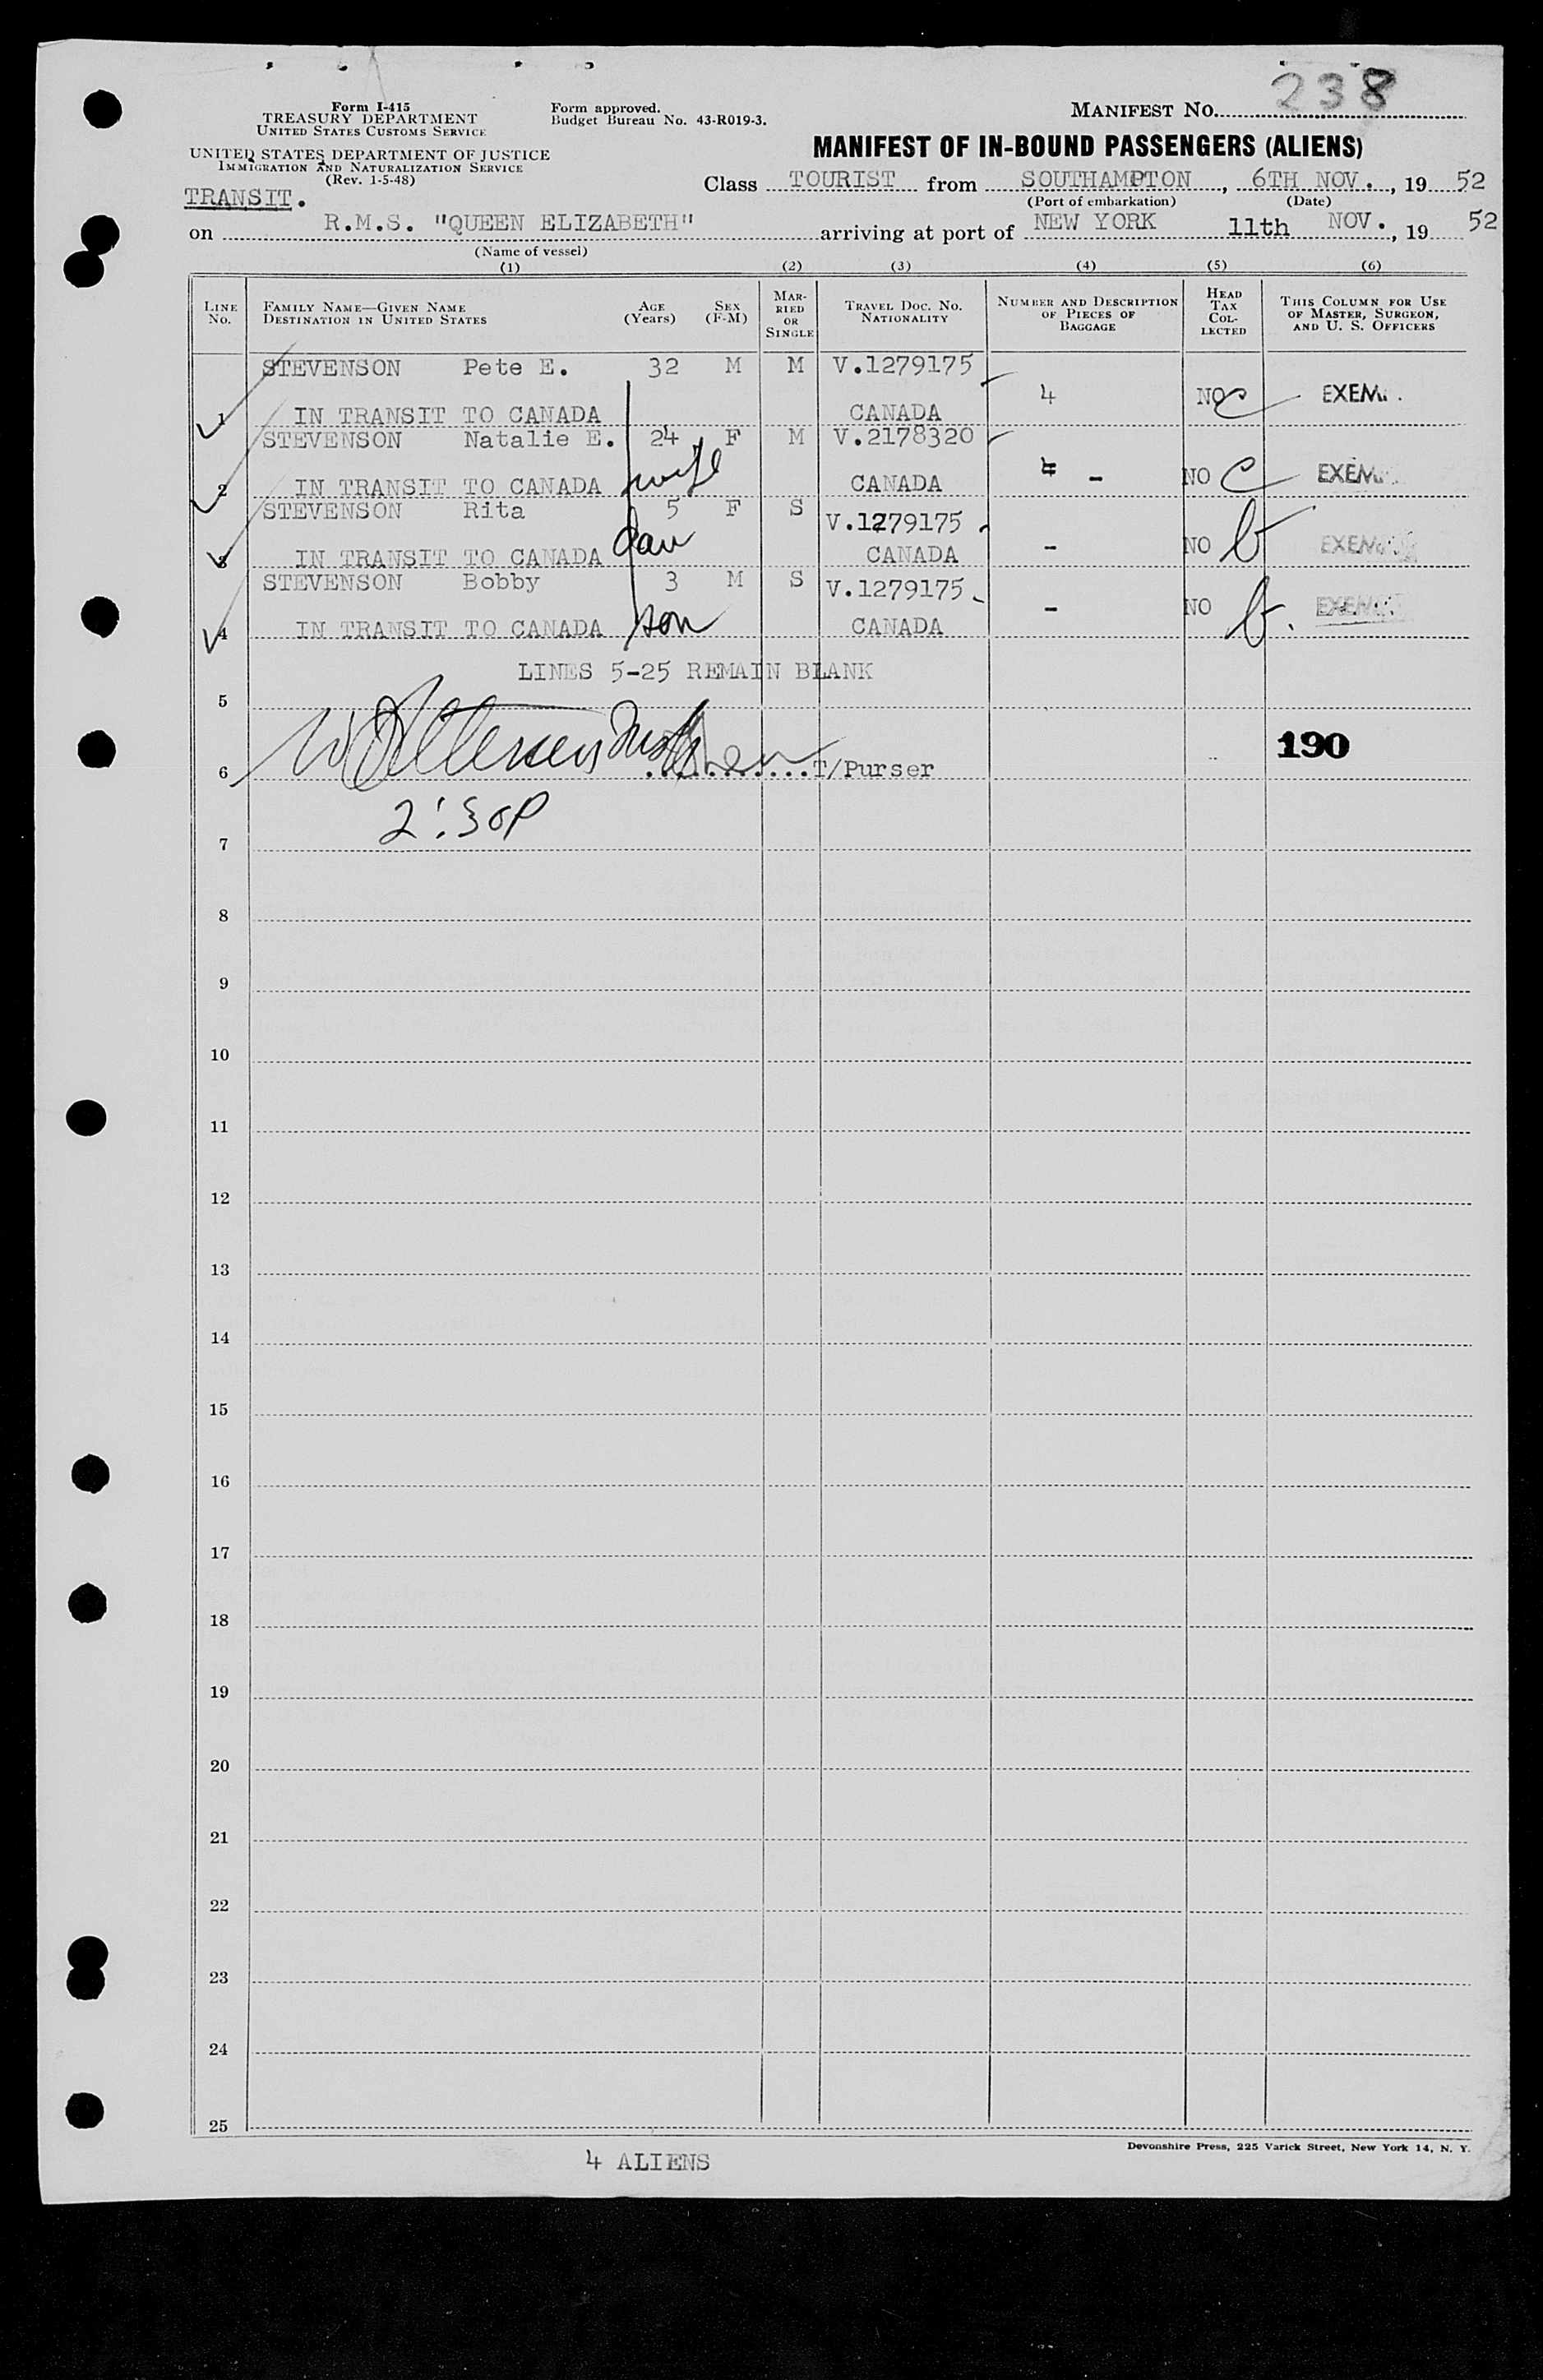 238
Form I-415
TREASURY DEPARTMENT
UNITED STATES CUSTOMS SERVICE
Form approved.
Budget Bureau No. 43-R019-3.
MANIFEST NO.
UNITED STATES DEPARTMENT OF JUSTICE
IMMIGRATION AND NATURALIZATION SERVICE
(Rev. 1-5-48)
MANIFEST OF IN-BOUND PASSENGERS (ALIENS)
TRANSIT.
Class TOURIST from SOUTHAMPTON, 6TH NOV., 1952
(Port of embarkation) (Date)
on R.M.S. "QUEEN ELIZABETH" arriving at port of NEW YORK 11th NOV., 1952
(Name of vessel)
(1) (2) (3) (4) (5) (6)
LINE No. FAMILY NAME—GIVEN NAME DESTINATION IN UNITED STATES AGE (Years) SEX (F-M) MARRIED OR SINGLE TRAVEL DOC. NO. NATIONALITY NUMBER AND DESCRIPTION OF PIECES OF BAGGAGE HEAD TAX COLLECTED THIS COLUMN FOR USE OF MASTER, SURGEON, AND U. S. OFFICERS
STEVENSON Pete E. 32 M M V.1279175
1 IN TRANSIT TO CANADA CANADA 4 NO C EXEM
STEVENSON Natalie E. 24 F M V.2178320
2 IN TRANSIT TO CANADA wife CANADA - NO C EXEM
STEVENSON Rita 5 F S V.1279175
3 IN TRANSIT TO CANADA dau CANADA - NO b EXEM
STEVENSON Bobby 3 M S V.1279175
4 IN TRANSIT TO CANADA son CANADA - NO b. EXEM
LINES 5-25 REMAIN BLANK
5
6 T/Purser 190
2:30P
7
8
9
10
11
12
13
14
15
16
17
18
19
20
21
22
23
24
25
Devonshire Press, 225 Varick Street, New York 14, N. Y.
4 ALIENS